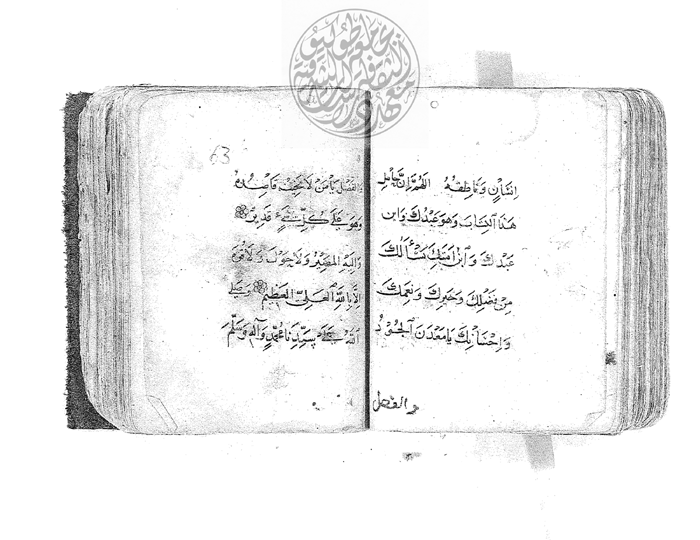 اِنْسَانٍ وَنَاطِقَهُ اَللّٰهُمَّ اِنَّ حَامِلَ
هٰذَا الْكِتَابَ وَهُوَ عَبْدُكَ وَابْنُ
عَبْدِكَ وَابْنُ اَمَتِكَ يَسْأَلُكَ
مِنْ فَضْلِكَ وَخَيْرِكَ وَنِعَمِكَ
وَاِحْسَانِكَ يَا مَعْدَنَ الْجُوْدُ
والفضل
63
وَالْفَضْلِ يَا مَنْ لَا يُخِيْفُ قَاصِدُهُ
وَهُوَ عَلٰى كُلِّ شَيْءٍ قَدِيْرٌ
وَاِلَيْهِ الْمَصِيْرُ وَلَا حَوْلَ وَلَا قُوَّةَ
اِلَّا بِاللّٰهِ الْعَلِيِّ الْعَظِيْمِ وَصَلَّى
اللّٰهُ عَلٰى سَيِّدِنَا مُحَمَّدٍ وَآلِهِ وَسَلَّمَ